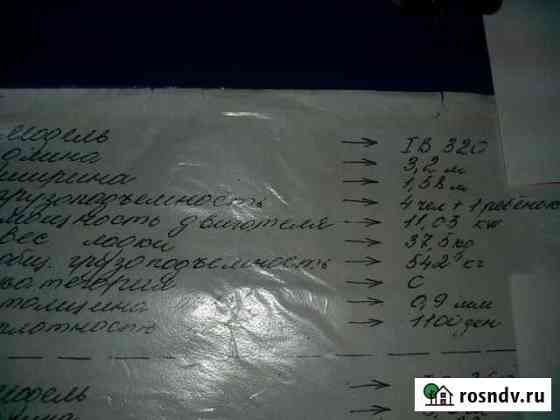 модель → IB 320
длина → 3,2 м
ширина → 1,58 м
грузоподъемность → 4 чел + 1 ребенок
мощность двигателя → 11,03 kw
вес лодки → 37,5 kg
общ. грузоподъемность → 542 кг
категория → C
толщина → 0,9 мм
плотность → 1100 ден
модель →
rosndv.ru